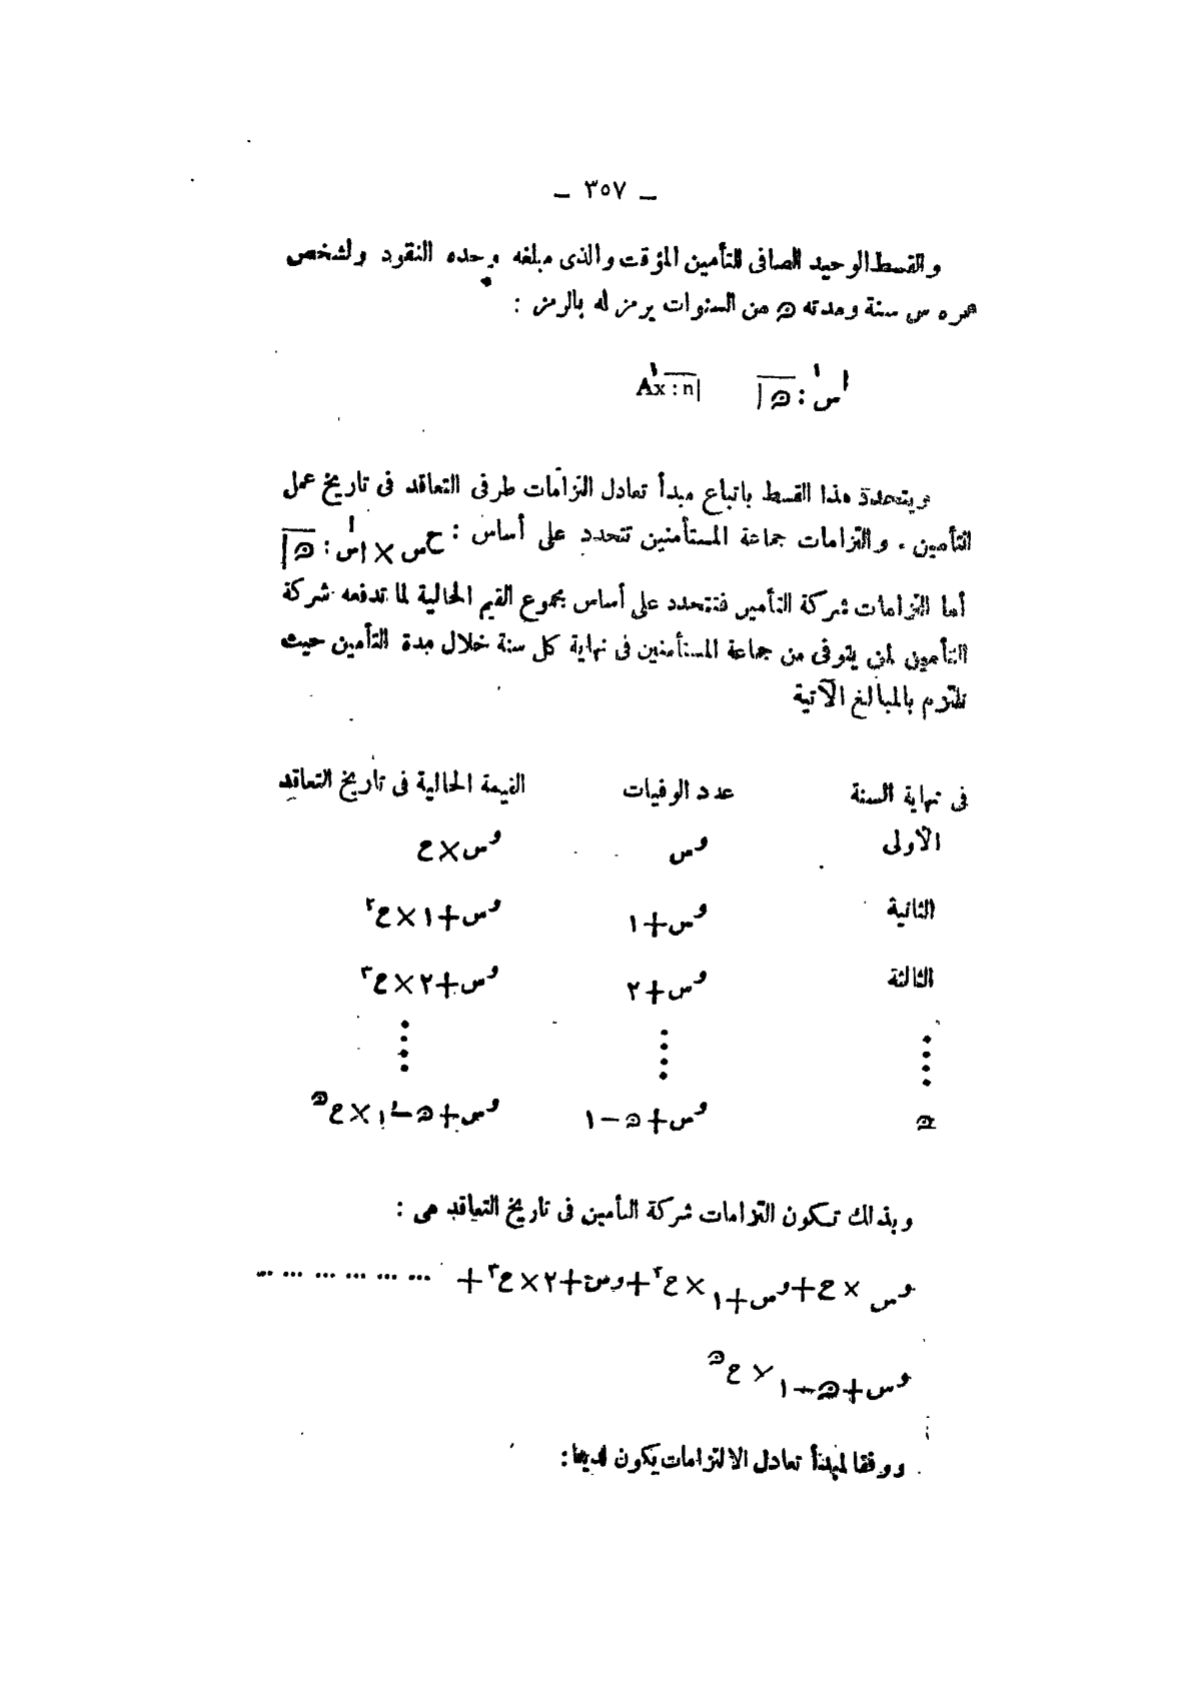 — ٣٥٧ —
والقسط الوحيد الصافى للتأمين المؤقت والذى مبلغه وحده النقود ولشخص
عمره س سنة ومدته ن من السنوات يرمز له بالرمز :
اَس : ن| Ax : n|
ويتحدد هذا القسط باتباع مبدأ تعادل التزامات طرفى التعاقد فى تاريخ عمل
التأمين . والتزامات جماعة المستأمنين تتحدد على أساس : حس × اس : ن|
أما التزامات شركة التأمين فتتحدد على أساس مجموع القيم الحالية لما تدفعه شركة
التأمين لمن يتوفى من جماعة المستأمنين فى نهاية كل سنة خلال مدة التأمين حيث
تلتزم بالمبالغ الآتية
فى نهاية السنة عدد الوفيات القيمة الحالية فى تاريخ التعاقد
الأولى وس وس × ع
الثانية وس+١ وس+١ × ع٢
الثالثة وس+٢ وس+٢ × ع٣
ن وس+ن−١ وس+ن−١ × عن
وبذلك تكون التزامات شركة التأمين فى تاريخ التعاقد هى :
وس × ع + وس+١ × ع٢ + وس+٢ × ع٣ + ... ... ... ... ... ...
وس+ن−١ × عن
ووفقا لمبدأ تعادل الالتزامات يكون لدينا :